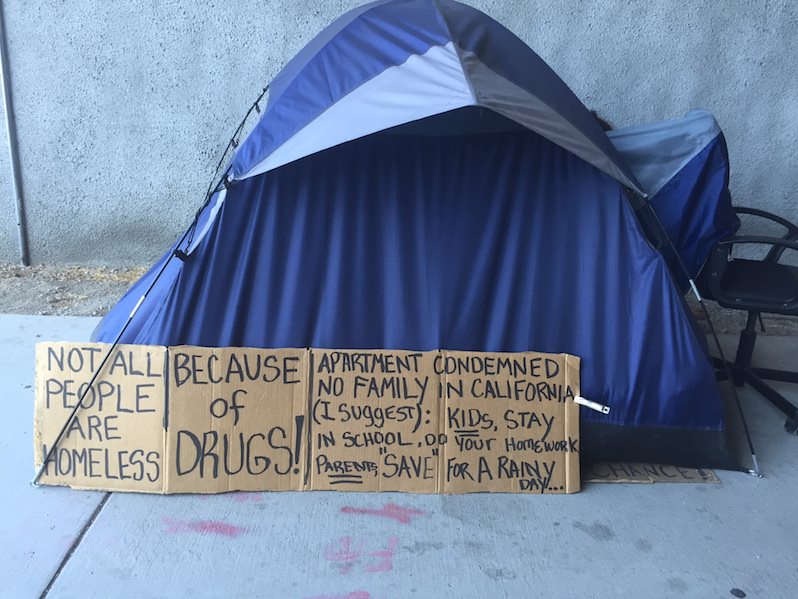 NOT ALL
PEOPLE
ARE
HOMELESS
BECAUSE
of
DRUGS!
APARTMENT CONDEMNED
NO FAMILY IN CALIFORNIA
(I SUGGEST): KIDS, STAY
IN SCHOOL, DO YOUR HOMEWORK
PARENTS, "SAVE" FOR A RAINY
DAY!...
CHANCE